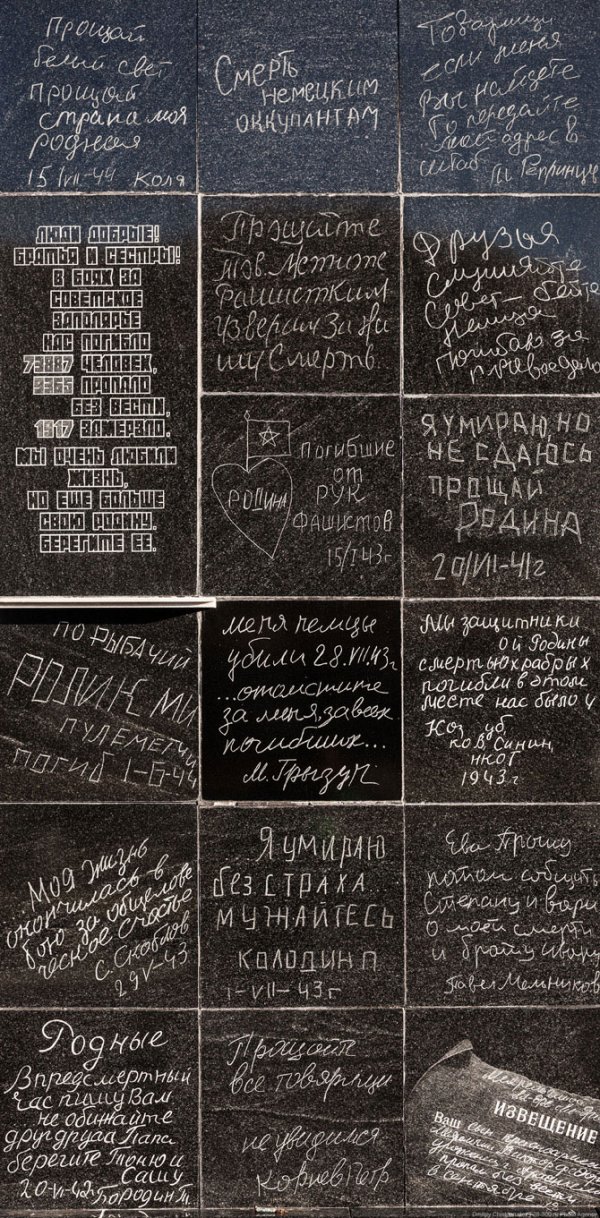 Прощай
белый свет
прощай
страна моя
родная
15/VII-44 Коля
Смерть
немецким
оккупантам
Товарищи
если меня
Вы найдете
То передайте
мой адрес в
штаб
ЛЮДИ ДОБРЫЕ!
БРАТЬЯ И СЕСТРЫ!
В БОЯХ ЗА
СОВЕТСКОЕ
ЗАПОЛЯРЬЕ
НАС ПОГИБЛО
73887 ЧЕЛОВЕК,
3355 ПРОПАЛО
БЕЗ ВЕСТИ,
1317 ЗАМЕРЗЛО.
МЫ ОЧЕНЬ ЛЮБИЛИ
ЖИЗНЬ,
НО ЕЩЕ БОЛЬШЕ
СВОЮ РОДИНУ.
БЕРЕГИТЕ ЕЕ.
Прощайте
тов. Мстите
Фашистким
Извергам За На
шу Смерть.
Друзья
Слушайте
Совет- бейте
Немца
Погибаю за
РОДИНА
погибшие
от
рук
фашистов
15/I 43г
Я УМИРАЮ, НО
НЕ СДАЮСЬ
ПРОЩАЙ
РОДИНА
20/VII-41г
П О РЫБАЧИЙ
РОДИК МИ
ПУЛЕМЕТЧИ
ПОГИБ 1-6-44
меня немцы
убили 28.VII.43г
...отомстите
за меня, за всех
погибших...
М. Грызун
Мы защитники
ой Родины
смертью храбрых
погибли в этом
месте нас было 4
Коз уб,
ков Синин,
нког
1943.г
...Моя жизнь
окончилась в
бою за общелове
ческое счастье
С. Скоблов
29 V-43
...Я УМИРАЮ
БЕЗ СТРАХА...
МУЖАЙТЕСЬ
КОЛОДИН П
1-VII-43г
Ева Прошу
потом
Степану и
о моей смерти
и брату Ивану
Павел Мельников
Родные
В предсмертный
час пишу Вам
не обижайте
друг друга Папа
берегите Тоню и
Сашу
20-VI-42г Бородин Т.
Прощайте
все товарищи
не увидимся
Корнев Петр
ИЗВЕЩЕНИЕ
Ваш сын
пропал без вести
в сентябре